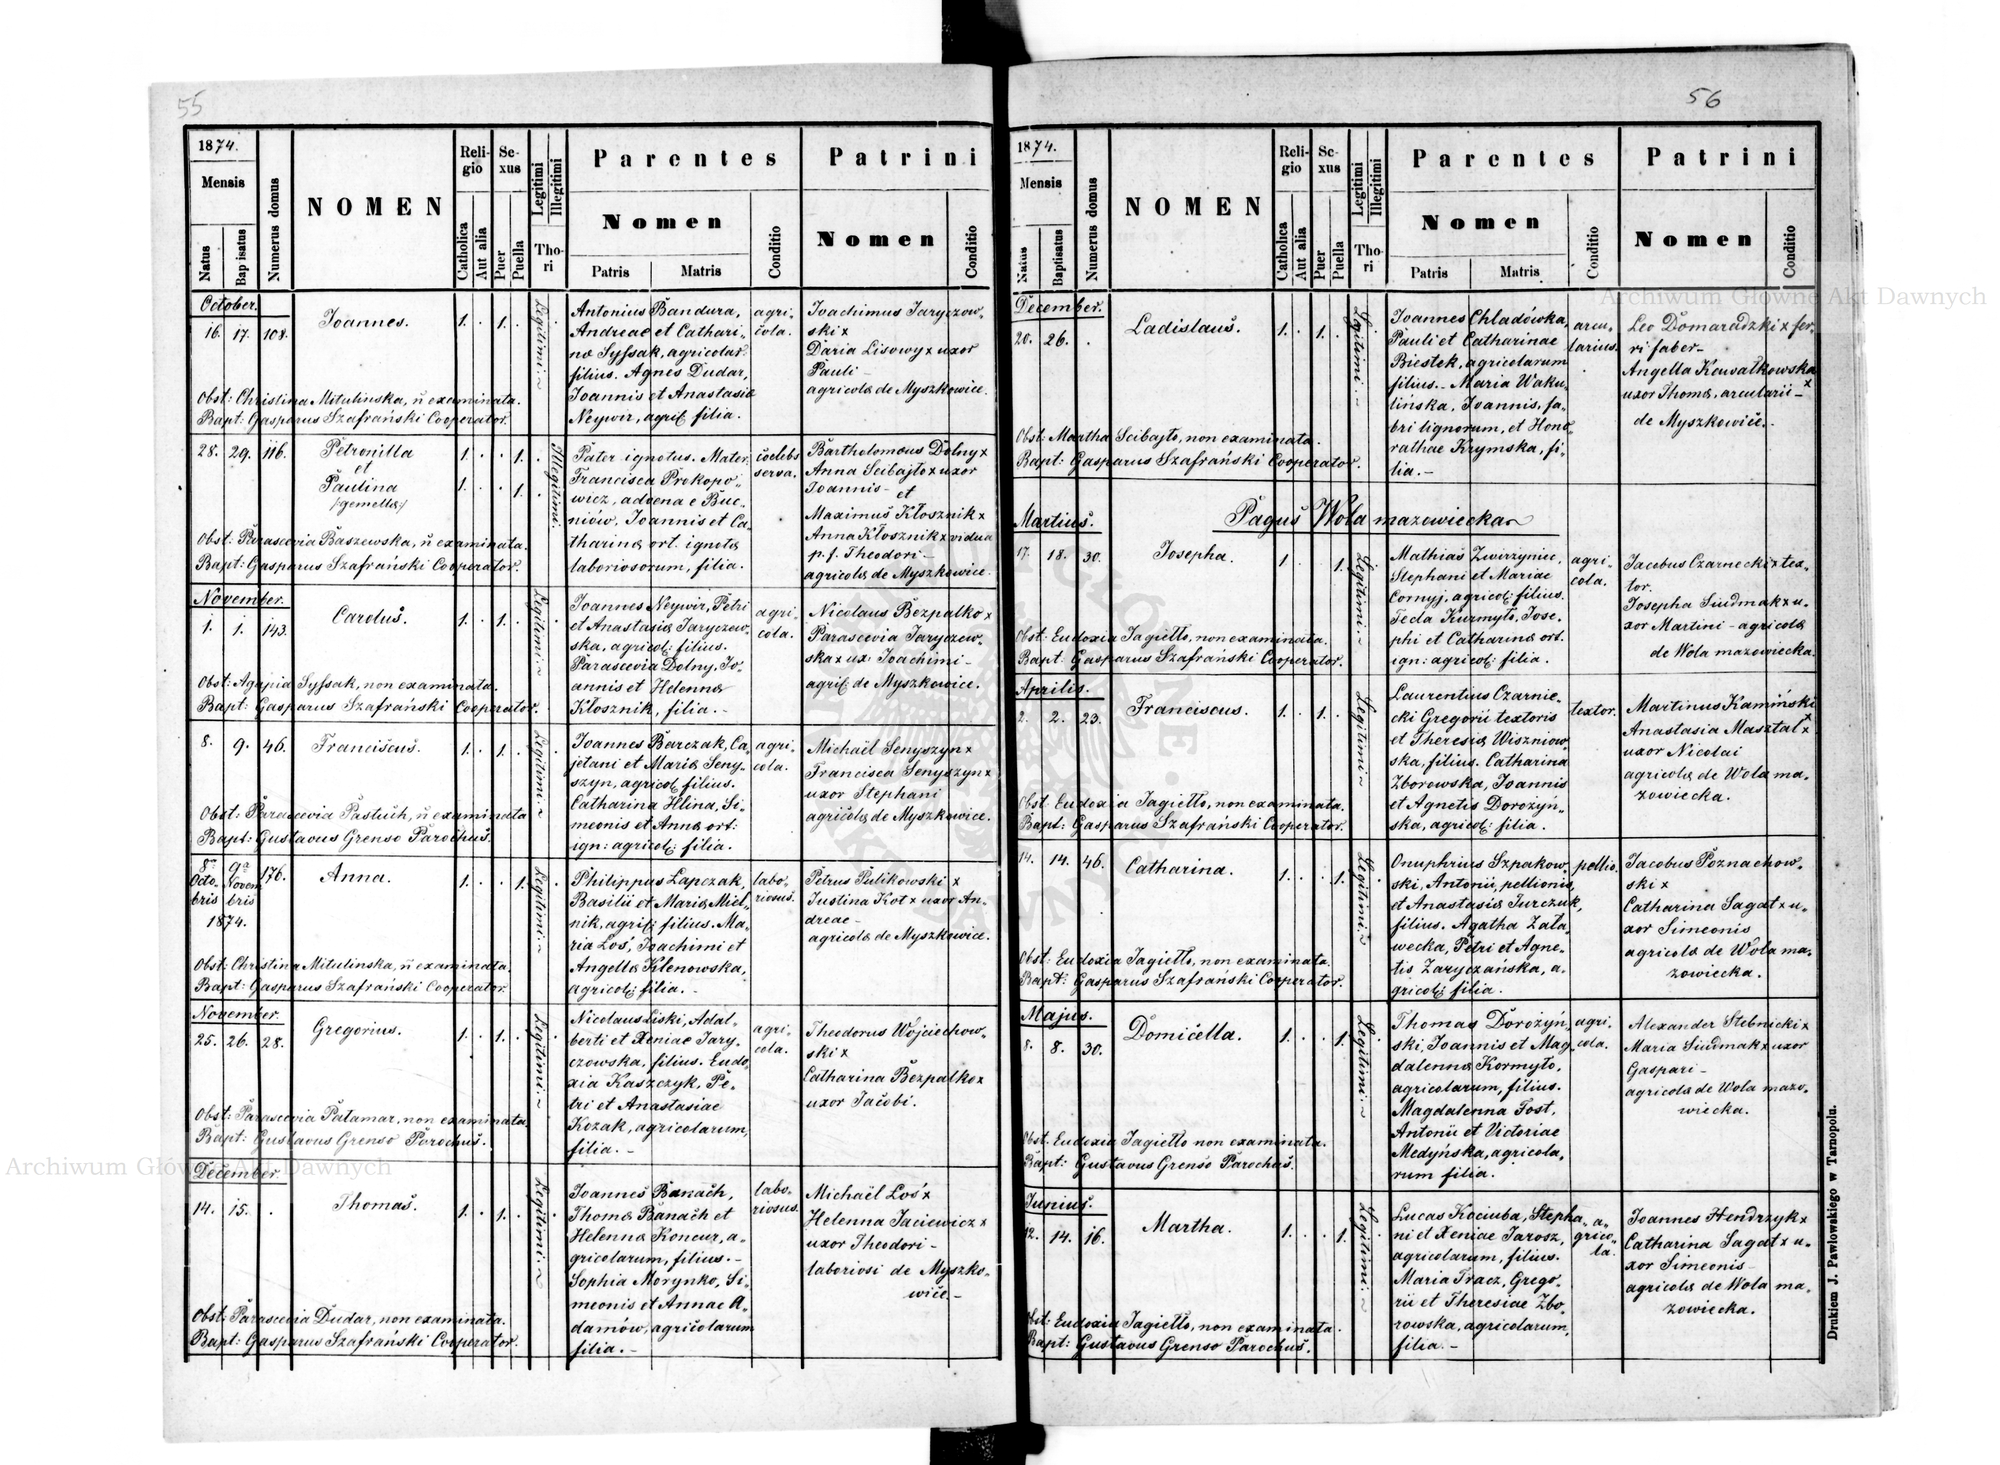 55
1874.
Mensis
Natus
Baptisatus
Numerus domus
NOMEN
Religio
Catholica
Aut alia
Sexus
Puer
Puella
Legitimi
Illegitimi
Thori
Parentes
Nomen
Patris
Matris
Conditio
Patrini
Nomen
Conditio
October.
16. 17. 108.
Joannes.
1. . 1. .
Legitimi.
Antonius Bandura,
Andreae et Cathari-
næ Syssak, agricolar.
filius. Agnes Dudar,
Joannis et Anastasiæ
Neywir, agric: filia.
agri-
cola.
Joachimus Jaryczow-
ski x
Daria Lisowy x uxor
Pauli -
agricolæ de Myszkowice.
Obst: Christina Mitulinska, ñ examinata.
Bapt: Gasparus Szafrański Cooperator.
28. 29. 116.
Petronilla
et
Paulina
/:gemellæ:/
1. . . 1.
1. . . 1.
Illegitimi.
Pater ignotus. Mater
Francisca Prokopo-
wicz, advena e Buc-
niów, Joannis et Ca-
tharinæ ort. ignotæ
laboriosorum, filia.
cœlebs
serva.
Bartholomæus Dolny x
Anna Scibajło x uxor
Joannis - et
Maximus Kłosznik x
Anna Kłosznik x vidua
p. f. Theodori -
agricolæ de Myszkowice.
Obst: Parascevia Baszewska, ñ examinata.
Bapt: Gasparus Szafrański Cooperator.
November.
1. 1. 143.
Carolus.
1. . 1. .
Legitimi.
Joannes Neywir, Petri
et Anastasiæ Jaryczew-
ska, agricol: filius.
Parascevia Dolny, Jo-
annis et Helennæ
Kłosznik, filia. -
agri-
cola.
Nicolaus Bezpalko x
Parascevia Jaryczew-
ska x ux: Joachimi -
agric: de Myszkowice.
Obst: Agapia Syssak, non examinata.
Bapt: Gasparus Szafrański Cooperator.
8. 9. 46.
Franciscus.
1. . 1. .
Legitimi.
Joannes Barczak, Ca-
jetani et Mariæ Seny-
szyn, agricol: filius.
Catharina Hlina, Si-
meonis et Annæ ort:
ign: agricol: filia.
agri-
cola.
Michaël Senyszyn x
Francisca Senyszyn x
uxor Stephani
agricolæ de Myszkowice.
Obst: Parascevia Pastuch, ñ examinata
Bapt: Gustavus Grenso Parochus.
8a 9a 176.
Octo- Novem
bris bris
1874.
Anna.
1. . . 1.
Legitimi.
Philippus Łapczak,
Basilii et Mariæ Miel-
nik, agric: filius. Ma-
ria Łoś, Joachimi et
Angellæ Klenowska,
agricol: filia. -
labo-
riosus.
Petrus Pulikowski x
Justina Kot x uxor An-
dreae -
agricolæ de Myszkowice.
Obst: Christina Mitulinska, ñ examinata.
Bapt: Gasparus Szafrański Cooperator.
November.
25. 26. 28.
Gregorius.
1. . 1. .
Legitimi.
Nicolaus Liski, Adal-
berti et Xeniae Jary-
czowska, filius. Eudo-
xia Kaszczyk, Pe-
tri et Anastasiae
Kozak, agricolarum,
filia. -
agri-
cola.
Theodorus Wojciechow-
ski x
Catharina Bezpalko x
uxor Jacobi.
Obst: Parascevia Palamar, non examinata.
Bapt: Gustavus Grenso Parochus.
December.
14. 15. .
Thomas.
1. . 1. .
Legitimi.
Joannes Banach,
Thomæ Banach et
Helennæ Koncur, a-
gricolarum, filius. -
Sophia Morynko, Si-
meonis et Annae A-
damów, agricolarum
filia. -
labo-
riosus.
Michaël Łoś x
Helenna Jaciewicz x
uxor Theodori -
laboriosi de Myszko-
wice -
Obst: Parascevia Dudar, non examinata.
Bapt: Gasparus Szafrański Cooperator.
56
1874.
Mensis
Natus
Baptisatus
Numerus domus
NOMEN
Religio
Catholica
Aut alia
Sexus
Puer
Puella
Legitimi
Illegitimi
Thori
Parentes
Nomen
Patris
Matris
Conditio
Patrini
Nomen
Conditio
December.
20. 26. .
Ladislaus.
1. . 1. .
Legitimi.
Joannes Chładówka,
Pauli et Catharinae
Biestek, agricolarum
filius. - Maria Waku-
lińska, Joannis, fa-
bri lignorum, et Hono-
rathae Krymska, fi-
lia. -
arcu-
larius.
Leo Domaradzki x fer-
ri faber -
Angella Kowalkowska x
uxor Thomæ, arcularii -
de Myszkowice. -
Obst: Martha Scibajło, non examinata.
Bapt: Gasparus Szafrański Cooperator.
Pagus Wola mazowiecka
Martius.
17. 18. 30.
Josepha.
1. . . 1.
Legitimi.
Mathias Zwirzyniec,
Stephani et Mariae
Cornyj, agricol: filius.
Tecla Kurmyło, Jose-
phi et Catharinæ ort.
ign: agricol: filia.
agri-
cola.
Jacobus Czarnecki x tex-
tor.
Josepha Siudmak x u-
xor Martini - agricolæ
de Wola mazowiecka.
Obst: Eudoxia Jagiełło, non examinata.
Bapt: Gasparus Szafrański Cooperator.
Aprilis.
2. 2. 23.
Franciscus.
1. . 1. .
Legitimi.
Laurentius Czarnie-
cki Gregorii textoris
et Theresiæ Wiszniow-
ska, filius. Catharina
Zborowska, Joannis
et Agnetis Dorożyń-
ska, agricol: filia.
textor.
Martinus Kamiński x
Anastasia Masztal x
uxor Nicolai
agricolæ de Wola ma-
zowiecka.
Obst: Eudoxia Jagiełło, non examinata.
Bapt: Gasparus Szafrański Cooperator.
14. 14. 46.
Catharina.
1. . . 1.
Legitimi.
Onuphrius Szpakow-
ski, Antonii, pellionis,
et Anastasiæ Jurczuk,
filius. Agatha Zala-
wecka, Petri et Agne-
tis Zaryczańska, a-
gricol: filia.
pellio.
Jacobus Poznachow-
ski x
Catharina Sagat x u-
xor Simeonis
agricolæ de Wola ma-
zowiecka.
Obst: Eudoxia Jagiełło, non examinata.
Bapt: Gasparus Szafrański Cooperator.
Majus.
8. 8. 30.
Domicella.
1. . . 1.
Legitimi.
Thomas Dorożyń-
ski, Joannis et Mag-
dalennæ Kormyło,
agricolarum, filius.
Magdalenna Tost,
Antonii et Victoriae
Medyńska, agricola-
rum filia.
agri-
cola.
Alexander Stebnicki x
Maria Siudmak x uxor
Gaspari -
agricolæ de Wola mazo-
wiecka.
Obst: Eudoxia Jagiełło non examinata.
Bapt: Gustavus Grenso Parochus.
Junius.
12. 14. 16.
Martha.
1. . . 1.
Legitimi.
Lucas Kociuba, Stepha-
ni et Xeniae Jarosz,
agricolarum, filius.
Maria Tracz, Grego-
rii et Theresiae Zbo-
rowska, agricolarum,
filia. -
a-
grico-
la.
Joannes Hendrzyk x
Catharina Sagat x u-
xor Simeonis -
agricolæ de Wola ma-
zowiecka.
Obst: Eudoxia Jagiełło, non examinata.
Bapt: Gustavus Grenso Parochus.
Drukiem J. Pawłowskiego w Tarnopolu.
Archiwum Główne Akt Dawnych
Archiwum Główne Akt Dawnych